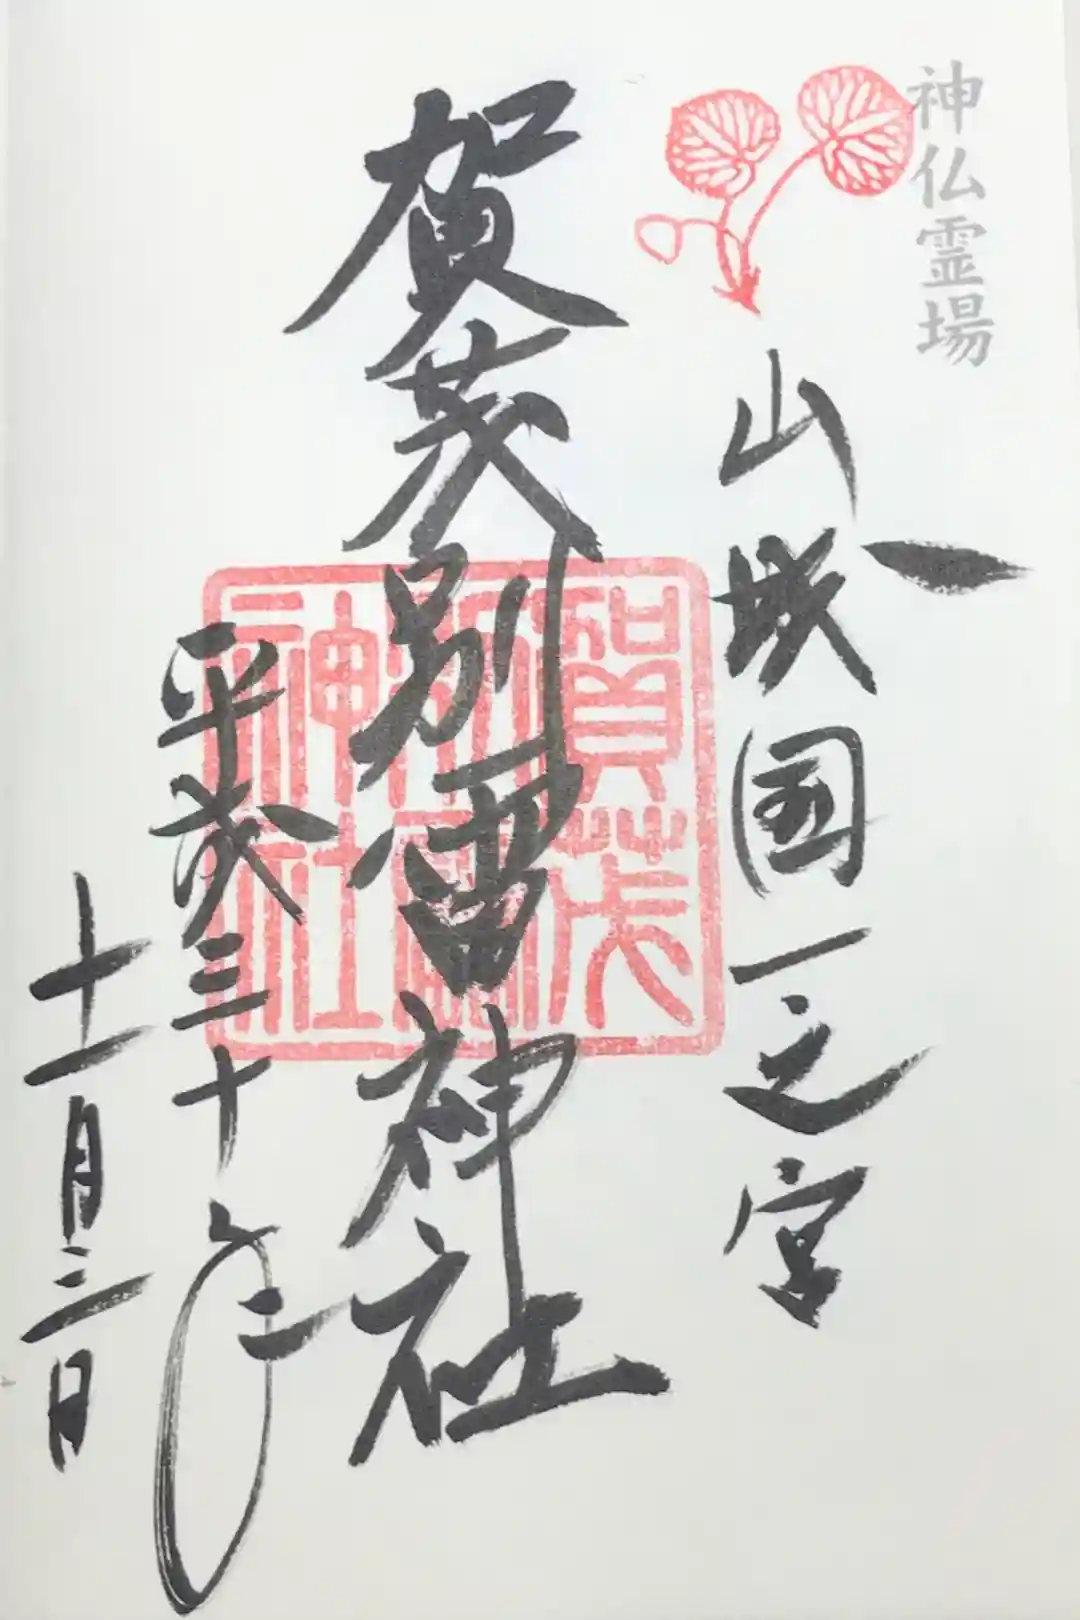 神仏霊場
山城国一之宮
賀茂別雷神社
賀茂
別雷
神社
平成三十年
十一月三日